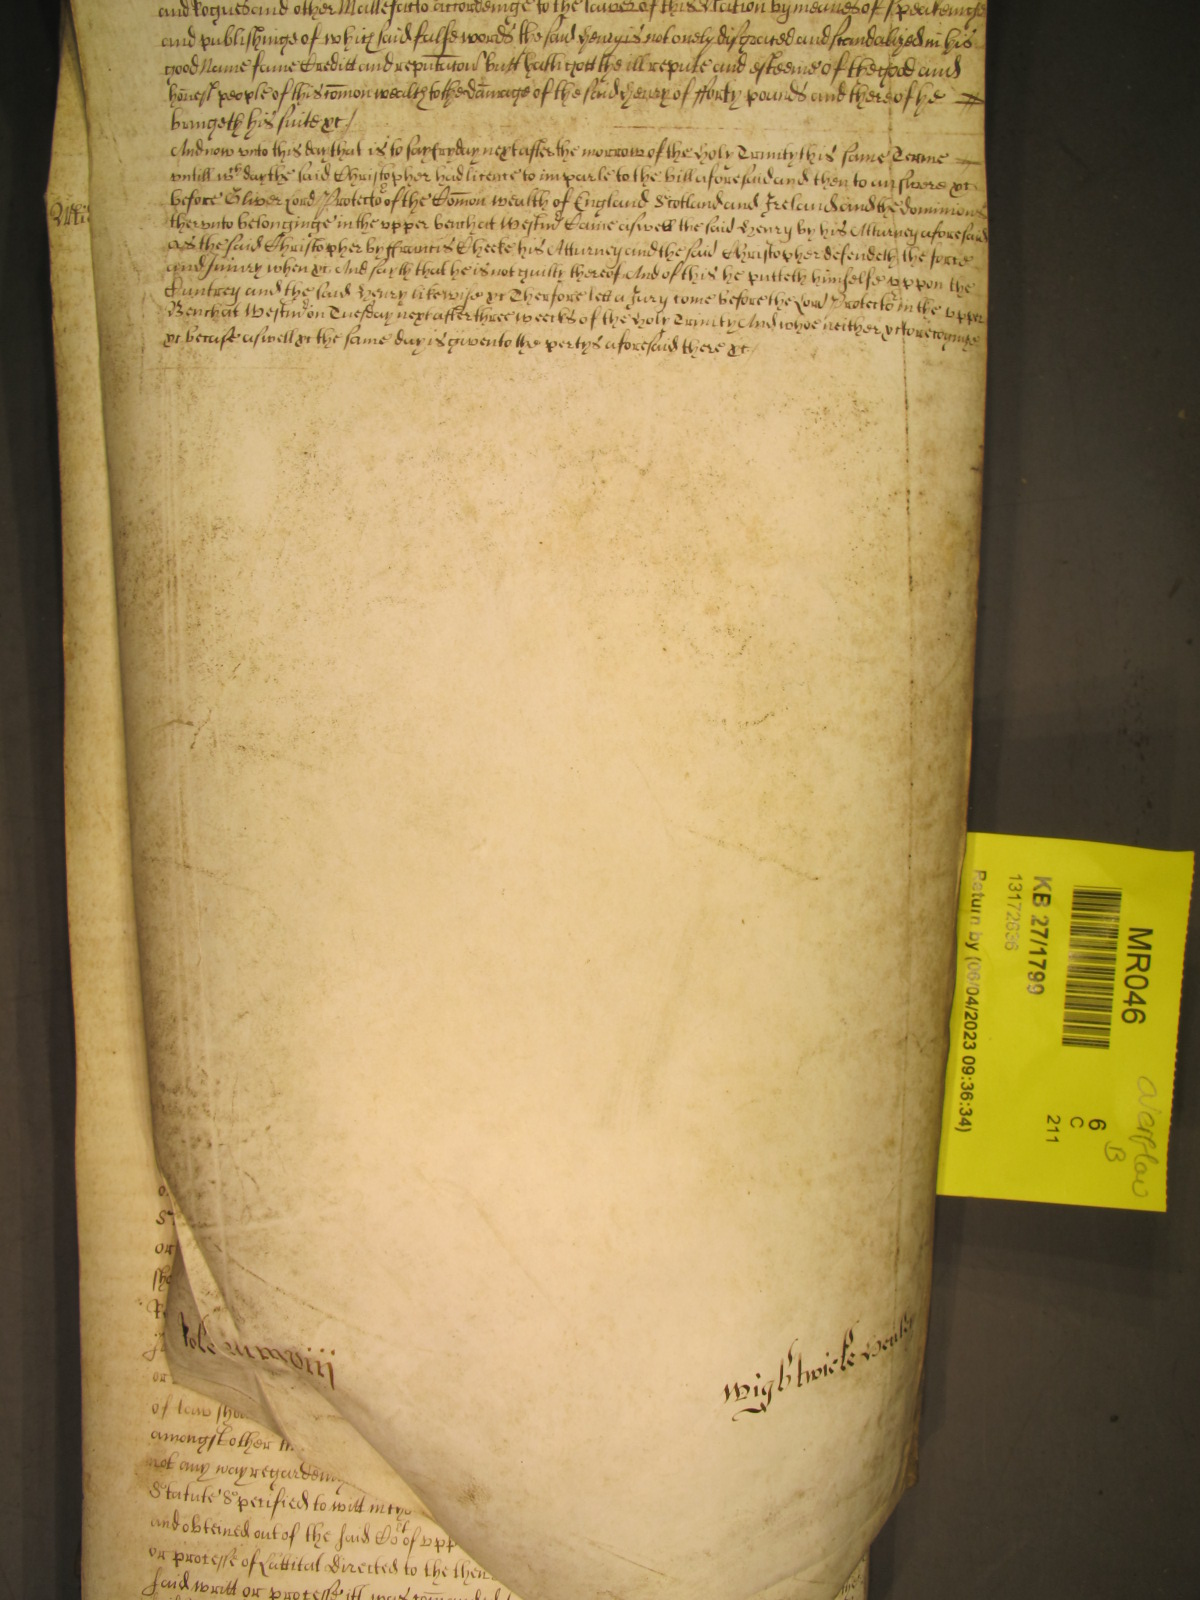 and Rogues and other Mallefactors accordeinge to the lawes of this Nation by meanes of speakeinge
and publishinge of which said false words the said Henry is not onely disgraced and scandalized in his
good Name fame Creditt and reputacon butt hath gott the ill repute and esteeme of the good and
honest people of this comon wealth to the damage of the said Henry of fforty pounds and thereof he
bringeth his suite &c/
And now unto this day that is to say fryday next after the morrow of the Holy Trinity this same Terme
untill wch day the said Christopher had licence to imparle to the bill aforesaid and then to answere &c
before Oliver Lord Protector of the Comon wealth of England Scotland and Ireland and the dominions
therunto belonginge in the upper bench at Westmr Came aswell the said Henry by his Atturney aforesaid
as the said Christopher by ffrancis Cheeke his Atturney and the said Christopher defendeth the force
and Iniury when &c And sayth that he is not guilty thereof And of this he putteth himselfe uppon the
Cuntrey and the said Henry likewise &c Therfore lett a Jury come before the Lord Protector in the upper
Bench at Westmr on Tuesday next after three weeks of the Holy Trinity And whoe neither &c to recognize
&c because aswell &c the same day is given to the partyes aforesaid there &c/
Role
Wightwicke
of law
amongst other
not any way
Statute Specified to witt
and obteined out of the said Cot of upp
or processe of Lattitat Directed to the then
said writt or processe itt was comanded
MR046
KB 27/1799
13172636
Return by (06/04/2023 09:36:34)
6
C
211
overflow
B